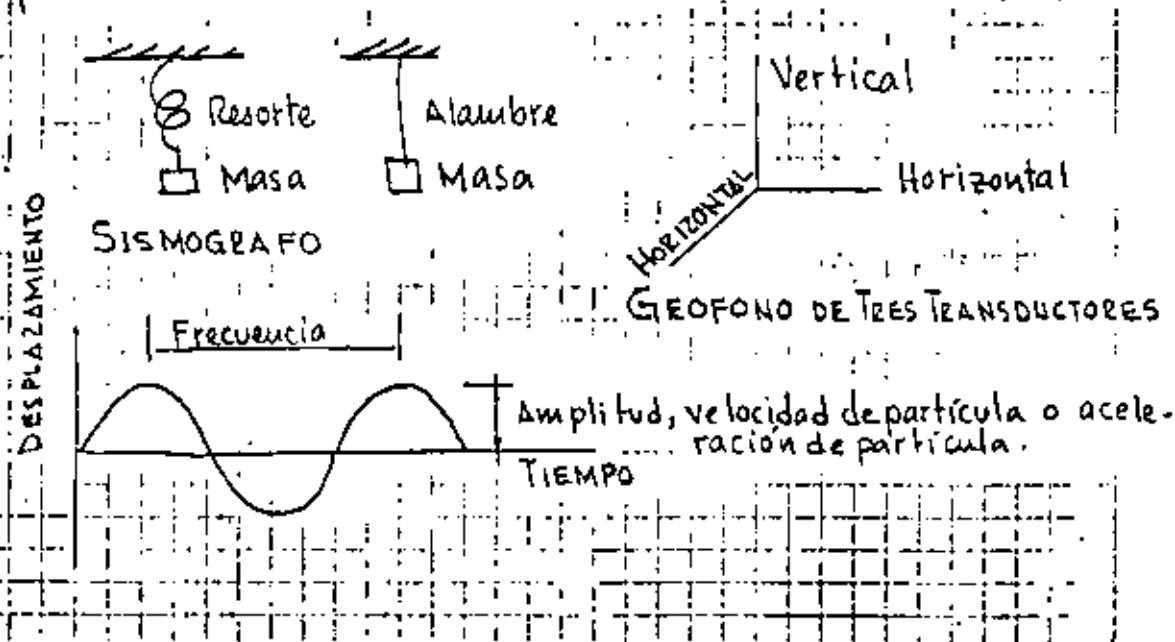 Resorte
Alambre
Masa
Masa
Vertical
Horizontal
HORIZONTAL
SISMOGRAFO
GEOFONO DE TRES TRANSDUCTORES
DESPLAZAMIENTO
Frecuencia
Amplitud, velocidad de partícula o acele-
ración de partícula.
TIEMPO